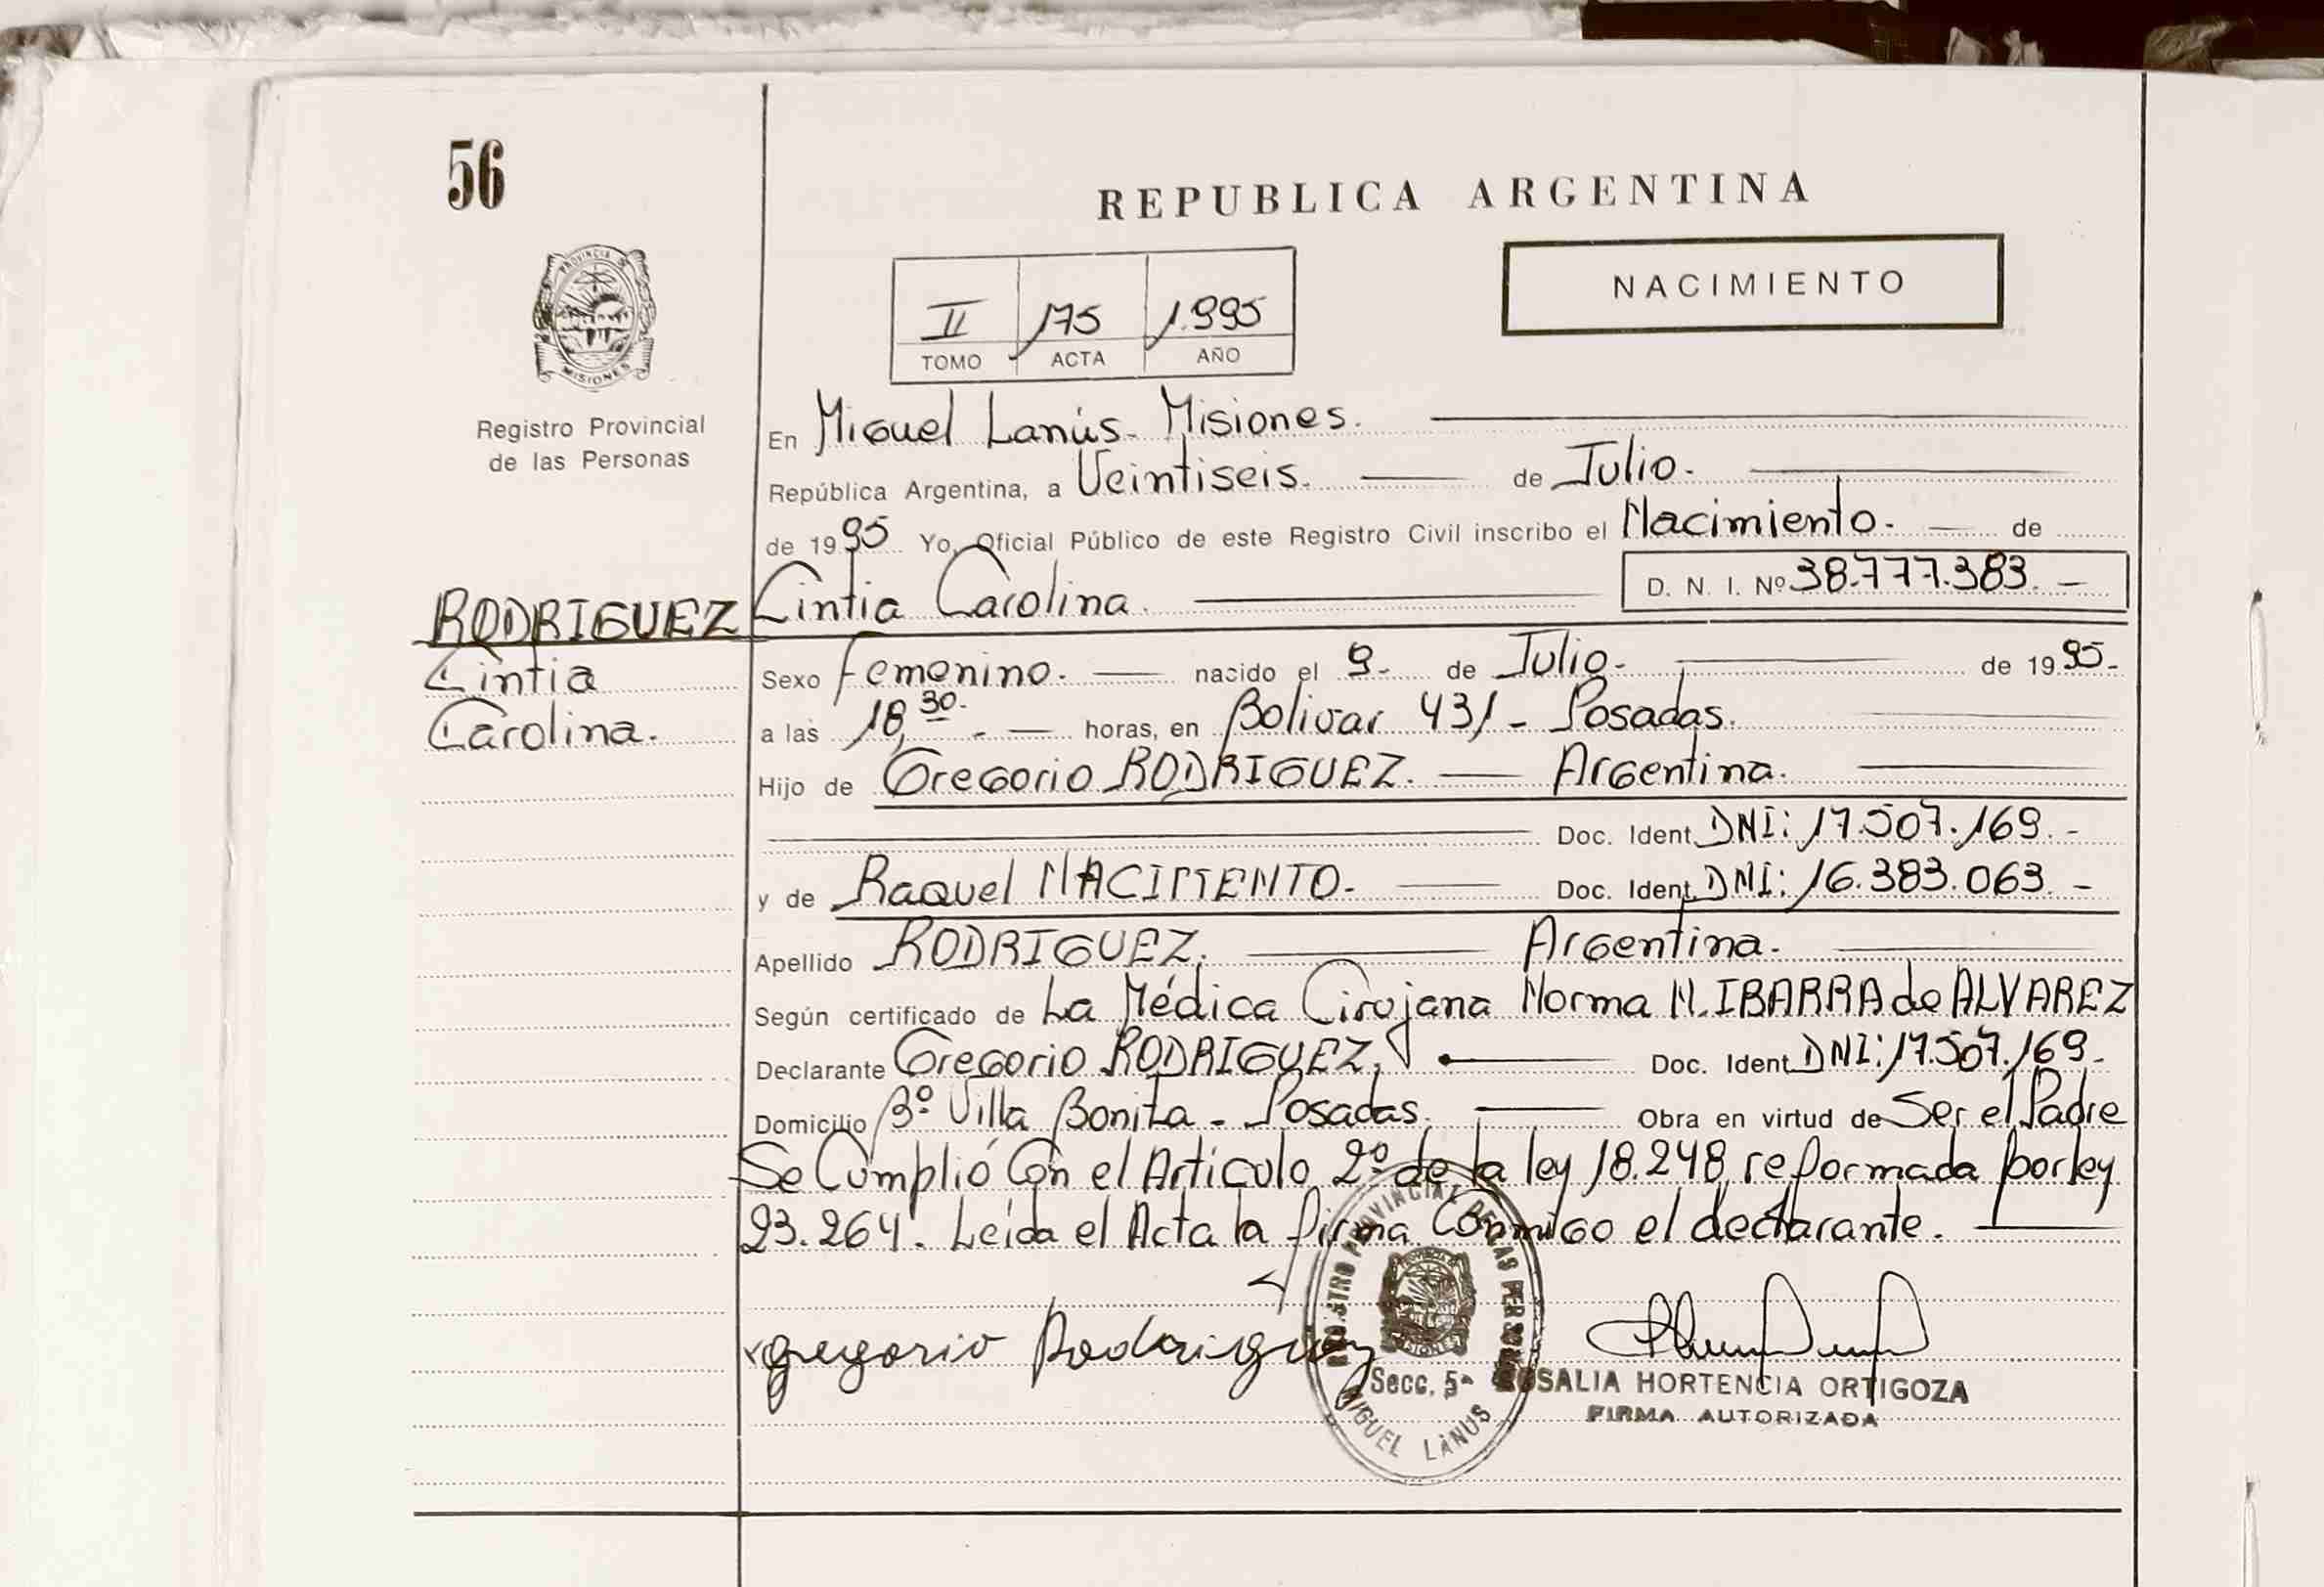 56
REPUBLICA ARGENTINA
NACIMIENTO
II 175 1.995
TOMO ACTA AÑO
PROVINCIA DE
MISIONES
Registro Provincial
de las Personas
En Miguel Lanús - Misiones.
República Argentina, a Veintiseis. de Julio.
de 1995 Yo, Oficial Público de este Registro Civil inscribo el Nacimiento. de
RODRIGUEZ Cintia Carolina. D. N. I. Nº 38.777.383. -
Cintia
Carolina.
Sexo Femenino. nacido el 9- de Julio. de 1995-
a las 18,30. - horas, en Bolivar 431 - Posadas.
Hijo de Gregorio RODRIGUEZ. Argentina.
Doc. Ident. DNI: 17.507.169. -
y de Raquel NACIMENTO. Doc. Ident. DNI: 16.383.063. -
Apellido RODRIGUEZ. Argentina.
Según certificado de La Médica Cirujana Norma N. IBARRA de ALVAREZ
Declarante Gregorio RODRIGUEZ. Doc. Ident. DNI: 17.507.169-
Domicilio Bº Villa Bonita - Posadas. Obra en virtud de Ser el Padre
Se Cumplió Con el Articulo 2º de la ley 18.248, reformada por ley
23.264. Leída el Acta la firma Conmigo el declarante.
gregorio Rodriguez
REGISTRO PROVINCIAL DE LAS PERSONAS
MISIONES
Secc. 5ª
MIGUEL LANUS
ROSALIA HORTENCIA ORTIGOZA
FIRMA AUTORIZADA